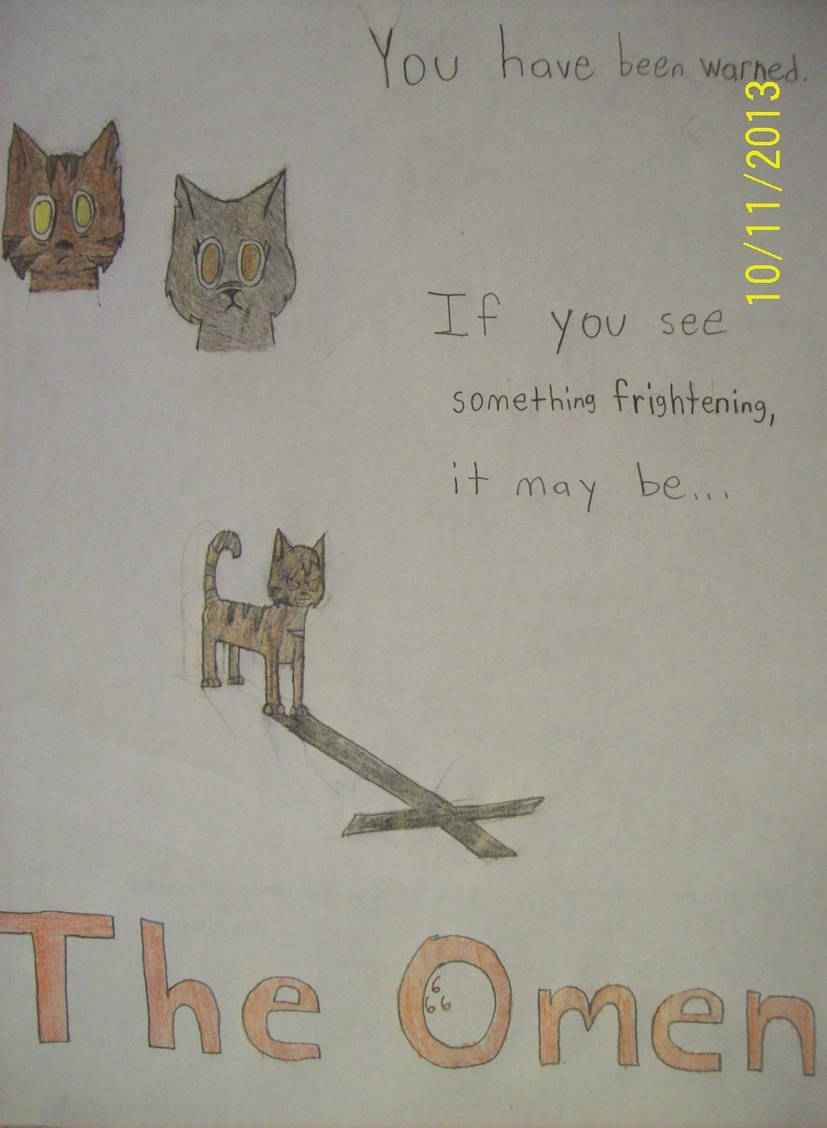 You have been warned.
10/11/2013
If you see
something frightening,
it may be...
The Omen
6
66